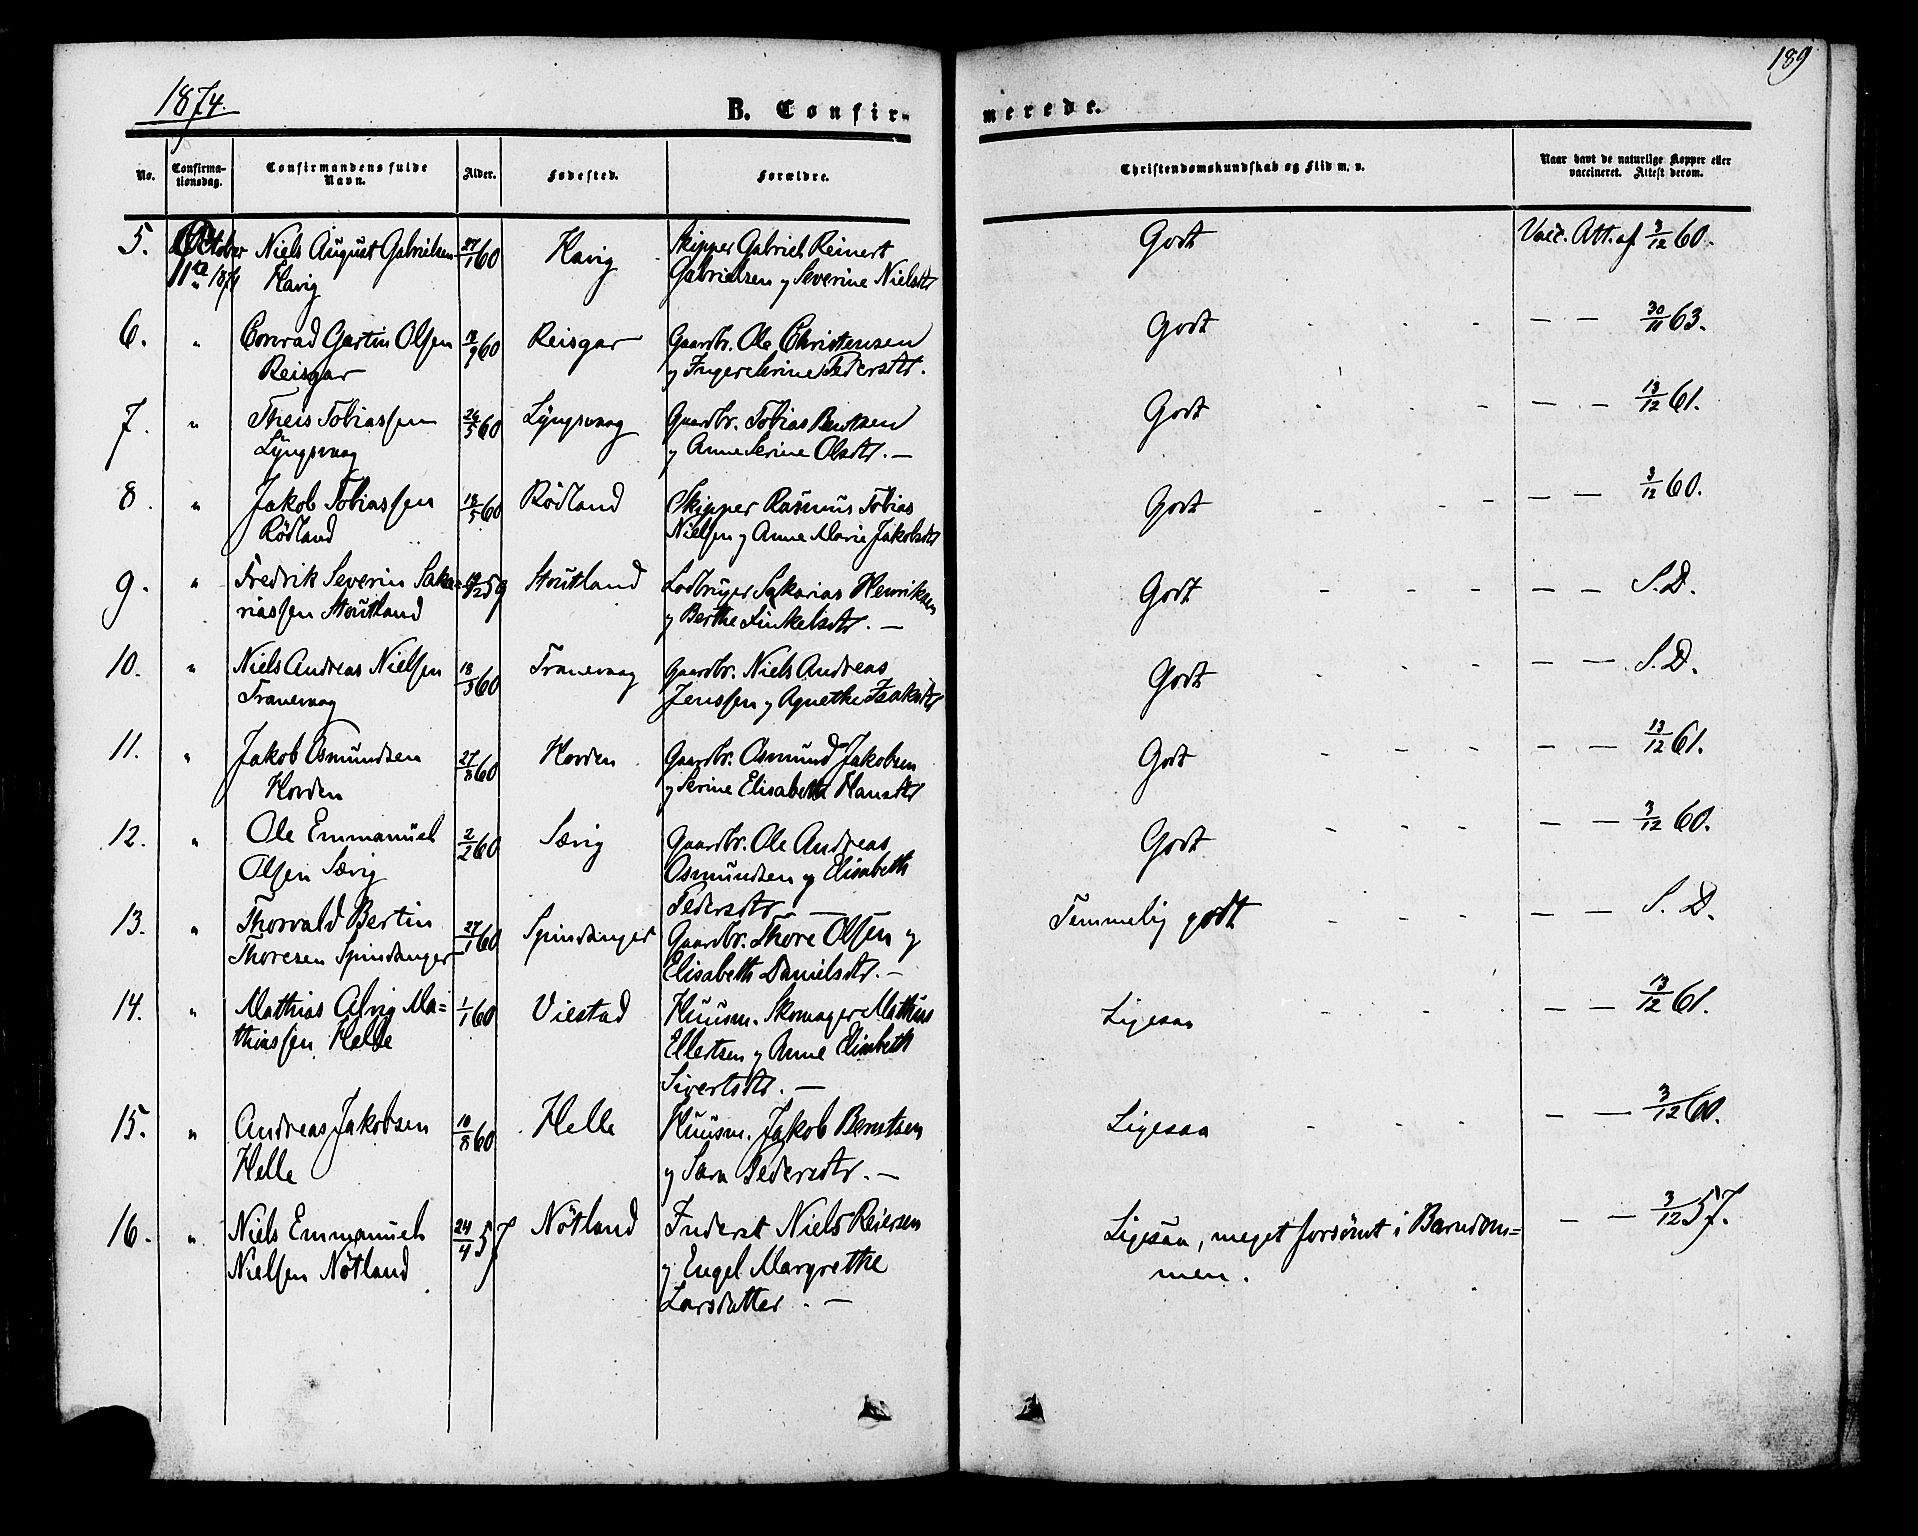 1874.
189
B. Confir-
merede.
No.
Confirma-
tionsdag.
Confirmandens fulde
Navn.
Alder.
Fødested.
Forældre.
Christendomskundskab og Flid m. v.
Naar havt de naturlige Kopper eller
vaccineret. Attest derom.
5. October Niels August Gabrielsen 27/1 60 Havig Skipper Gabriel Reinert Godt Vacc. Att. af 3/12 60.
11te 1874 Havig Gabrielsen og Severine Nielsdtr
6. " Conrad Gartin Olsen 18/9 60 Reisgar Gaardbr. Ole Christensen Godt - - - — — 30/11 63.
Reisgar og Inger Serine Pedersdtr.
7. " Theis Tobiassen 26/5 60 Lyngsvaag Gaardbr. Tobias Berntsen Godt - - - — — 13/12 61.
Lyngsvaag og Anne Serine Olsdtr. —
8. " Jakob Tobiassen 18/5 60 Rødland Skipper Rasmus Tobias Godt - - - — — 3/12 60.
Rødland Nielsen og Anne Marie Jakobsdtr
9. " Fredrik Severin Saka= 59 Stoutland Sakarias Henriksen Godt - - - — — S. D.
riassen Stoutland og Berthe —
10. " Niels Andreas Nielsen 18/5 60 Tranevaag Gaardbr. Niels Andreas Godt - - - — — S. D.
Tranevaag Jenssen og Agnethe Isaksdtr
11. " Jakob Osmundsen 27/8 60 Horden Gaardbr. Osmund Jakobsen Godt - - - — — 13/12 61.
Horden og Serine Elisabeth Hansdtr
12. " Ole Emmanuel 2/2 60 Særig Gaardbr. Ole Andreas Godt - - - — — 3/12 60.
Olsen Særig Osmundsen og Elisabeth
Pedersdtr —
13. " Thorvald Bertin 27/1 60 Spindanger Gaardbr. Thore Olsen og Temmelig godt - - - — — S. D.
Thoresen Spindanger Elisabeth Danielsdtr. —
14. " Mathias Alvig Ma= 1/1 60 Viestad Huusm. Skomager Mathias Ligesaa - - - — — 13/12 61.
thiassen Helle Ellertsen og Anne Elisabeth
Sivertsdtr. —
15. " Andreas Jakobsen 10/8 60 Helle Huusm. Jakob Berntsen Ligesaa - - - — — 3/12 60.
Helle og Sara Pedersdtr. —
16. " Niels Emmanuel 24/4 57 Nøtland Inderst Niels Reiersen Ligesaa, meget forsømt i Barndom= — — 3/12 57.
Nielsen Nøtland og Engel Margrethe men.
Larsdatter. —